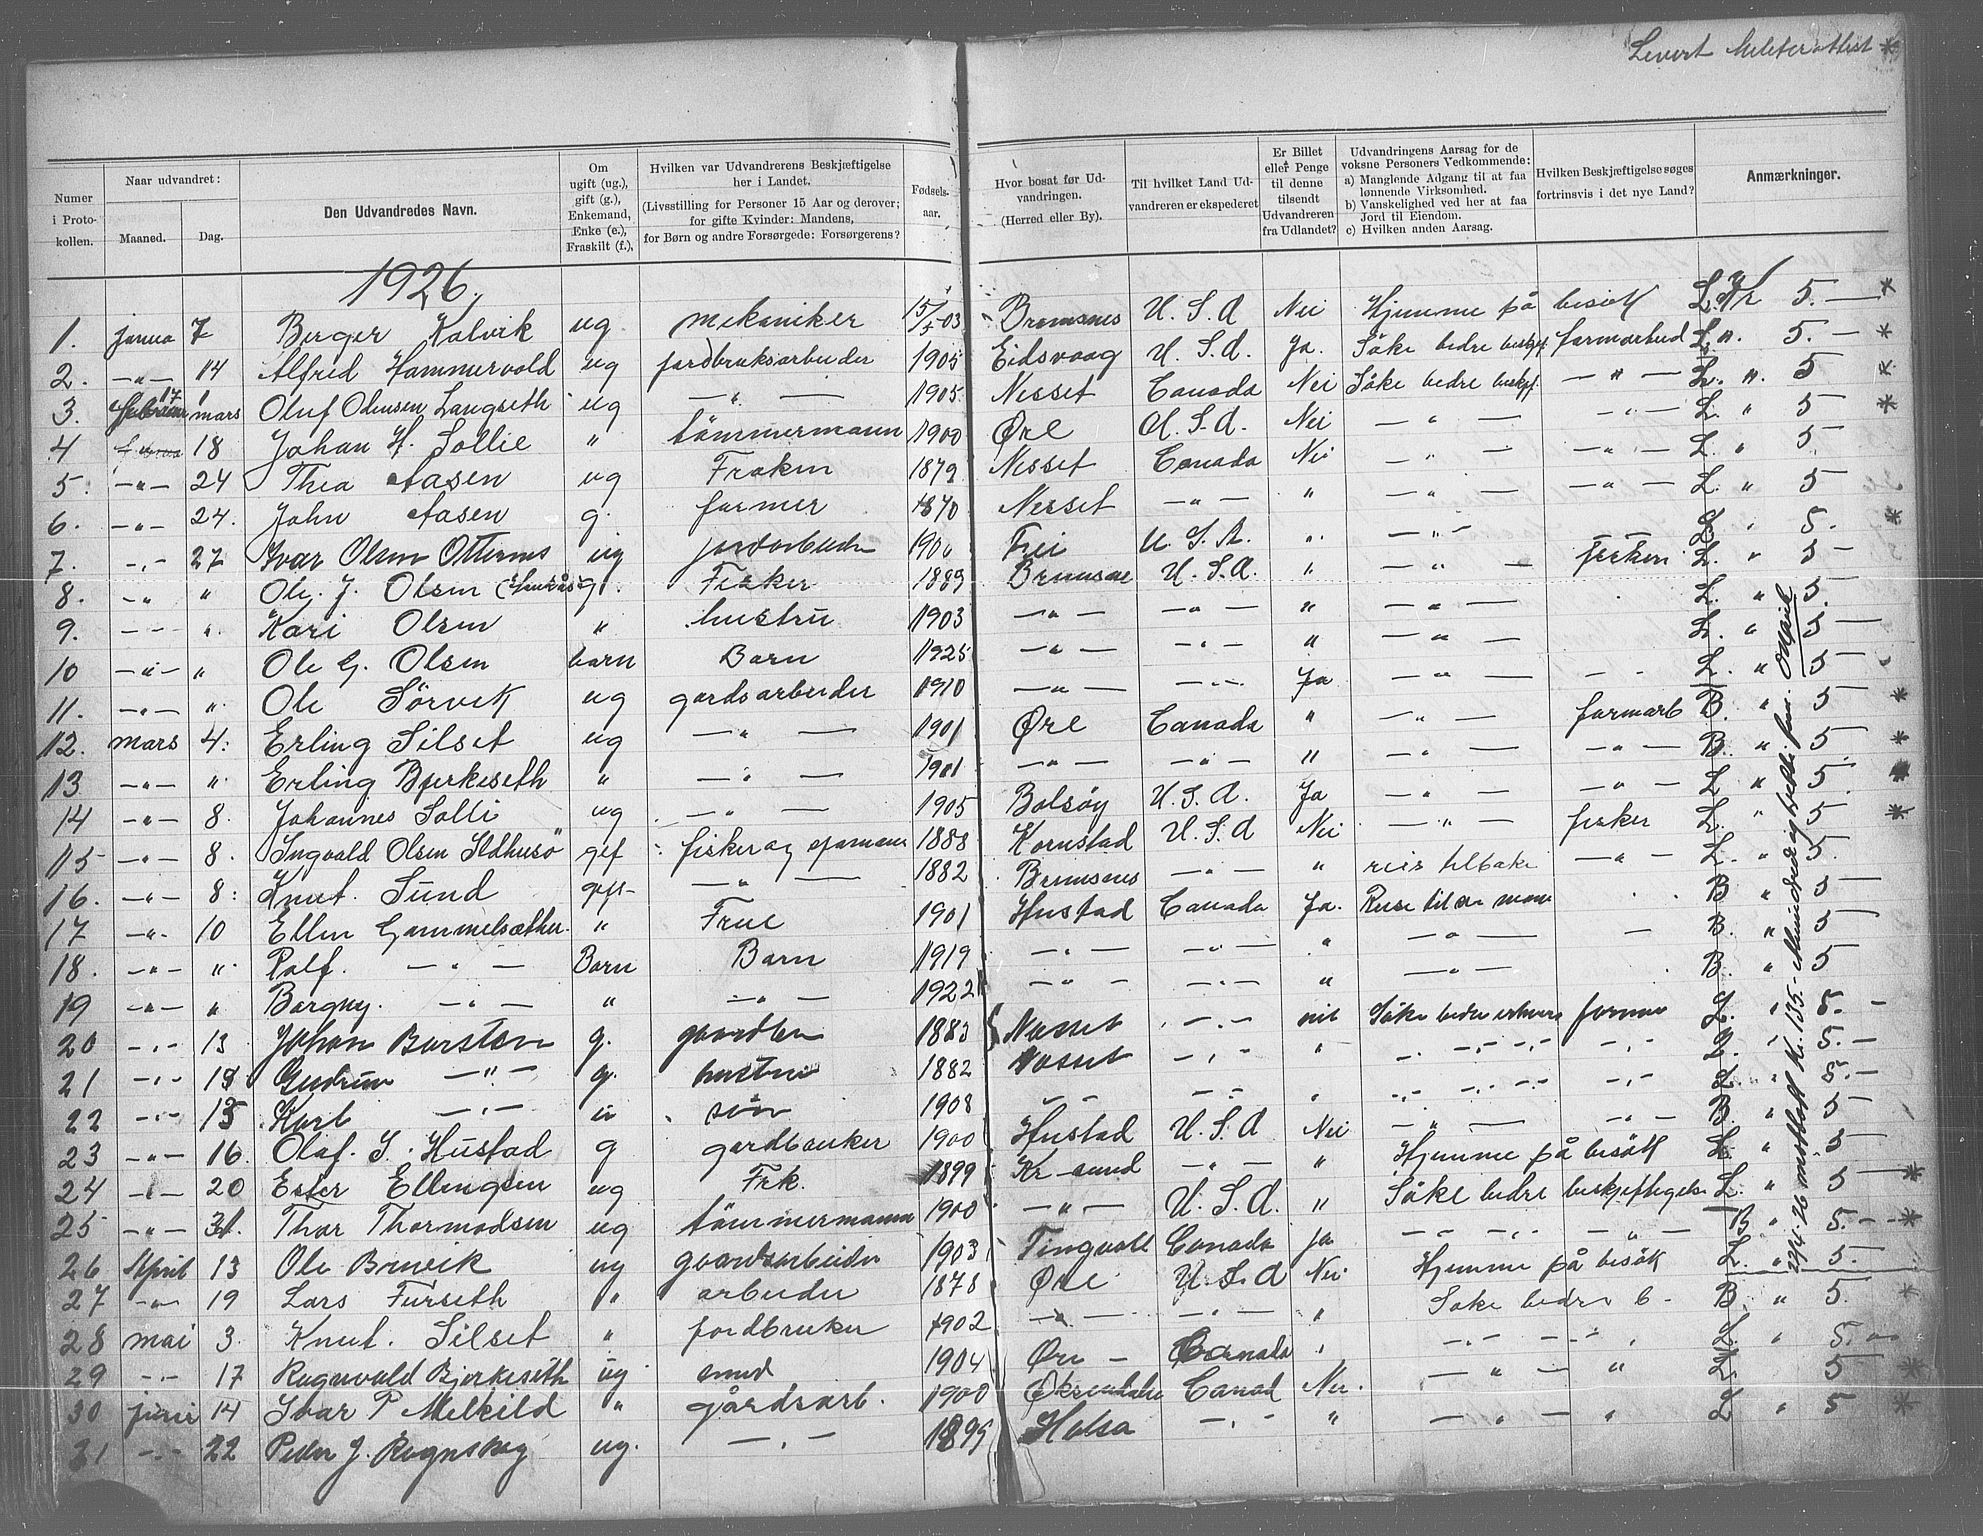 Levert Militærattest *
Numer i Protokollen.
Naar udvandret:
Maaned.
Dag.
Den Udvandredes Navn.
Om ugift (ug.), gift (g.), Enkemand, Enke (e.), Fraskilt (f.),
Hvilken var Udvandrerens Beskjæftigelse her i Landet.
(Livsstilling for Personer 15 Aar og derover; for gifte Kvinder: Mandens, for Børn og andre Forsørgede: Forsørgerens?
Fødselsaar.
Hvor bosat før Udvandringen.
(Herred eller By).
Til hvilket Land Udvandreren er ekspederet
Er Billet eller Penge til denne tilsendt Udvandreren fra Udlandet?
Udvandringens Aarsag for de voksne Personers Vedkommende:
a) Manglende Adgang til at faa lønnende Virksomhed.
b) Vanskelighed ved her at faa Jord til Eiendom.
c) Hvilken anden Aarsag.
Hvilken Beskjæftigelse søges fortrinsvis i det nye Land?
Anmærkninger.
1926.
1. janua 7 Berger Kalvik ug mekaniker 15/5-03 Bremsnes U.S.A Nei Hjemme på besøk L. Kr 5.— *
2. —"— 14 Alfred Hammervold ug jordbruksarbeider 1905 Eidsvaag U.S.A. Ja. Søke bedre beskj. farmarbeid L. ". 5.— *
3. Februar 17 mars Oluf Olausen Langseth ug —"— 1905. Nesset Canada Nei Søke bedre beskj. —"— L. ". 5 *
4 18 Johan H. Sollie " tømmermann 1900 Øre U.S.A. Nei —"— —"— L. " 5 *
5. —"— 24 Thea Aasen ug Frøken 1879 Nesset Canada Nei —"— —"— L. " 5
6. —"— 24. John Aasen g. farmer 1870 Nesset —"— " —"— —"— L. " 5
7. —"— 27 Ivar Olsen Otternes ug jordarbeider Frei U.S.A. " —"— L " 5. *
8. —"— " Ole J. Olsen g. Fisker 1889 Bremsnes U.S.A. " —"— fiskeri L. " 5—
9. —"— " Kari Olsen " hustru 1903 —"— —"— " —"— L. " 5.
10 —"— " Ole G. Olsen barn Barn 1925 —"— —"— " —"— L. " 5
11. —"— " Ole Sørvik ug gardsarbeider 1910 —"— —"— Ja —"— L. " 5—
12. mars 4. Erling Silset ug —"— 1901 Øre Canada " —"— farmarb B. " 5 *
13 —"— " Erling Bjerkeseth " —"— 1901 —"— —"— " —"— —"— B. " 5 *
14 —"— 8. Johannes Solli ug —"— 1905 Bolsøy U.S.A. Ja —"— —"— L " 5. *
15 —"— 8. Ingvald Olsen Ildhusø gif fisker og 1888 Kornstad U.S.A Nei —"— fisker L. " 5 *
16. —"— 8. Knut Sund gift —"— 1882 Bremsnes —"— " reis tilbake —"— L. " 5.
17 —"— 10 Ellen Gammelsæther. " Frue 1901 Hustad Canada Ja. Reise til sin mann B " 5—
18. —"— " Ralf. —"— Barn Barn 1919 —"— —"— " —"— — B. " 5
19 —"— " Borgny. —"— " —"— 1922 —"— —"— " —"— B. " 5
20 —"— 13 Johan Barsten g. gaardbr 1883 Nesset —"— nei Søke bedre erhverv farmer L. " 5.—
21 —"— Gudrun —"— g. hustru 1882 Nesset —"— " —"— —"— L. " 5.—
22 —"— 15 Karl —"— sønn 1908 —"— —"— " —"— —"— L " 5.—
23 —"— 16. Olaf. S. Hustad g gardbruker 1900 Hustad U.S.A Nei —"— —"— B. " 5
24 —"— 20 Ester Ellingsen ug Frk. 1899 Kr-sund —"— " Hjemme på besøk L " 5
25 —"— 31. Thor Thormodsen ug tømmermann 1900 —"— U.S.A. " Søke bedre beskjeftigelse L. " 5 — *
26 April 13 Ole ug gaardsarbeider 1903 Tingvoll Canada Ja —"— —"— B " 5.— *
27 —"— 19 Lars Furseth " arbeider 1878 Øre U.S.A Nei Hjemme på besøk L. " 5.—
28 mai 3. Knut. Silset " jordbruker 1902 —"— —"— " Søke bedre b— B. " 5. *
29 —"— 17 Ragnvald Bjerkeseth ug smed 1904 Øre — Canada " —"— " L. " 5.00
30 juni 14 Ivar P Melkild " gårdsarb. 1900 Øksendalen Canad Nei. —"— " L. " 5 *
31 —"— 22 Peder J. Rognskog ug. —"— 1899 Halsa —"— " —"— " L " 5 *
29/4-26 mottatt Kr. 135.-